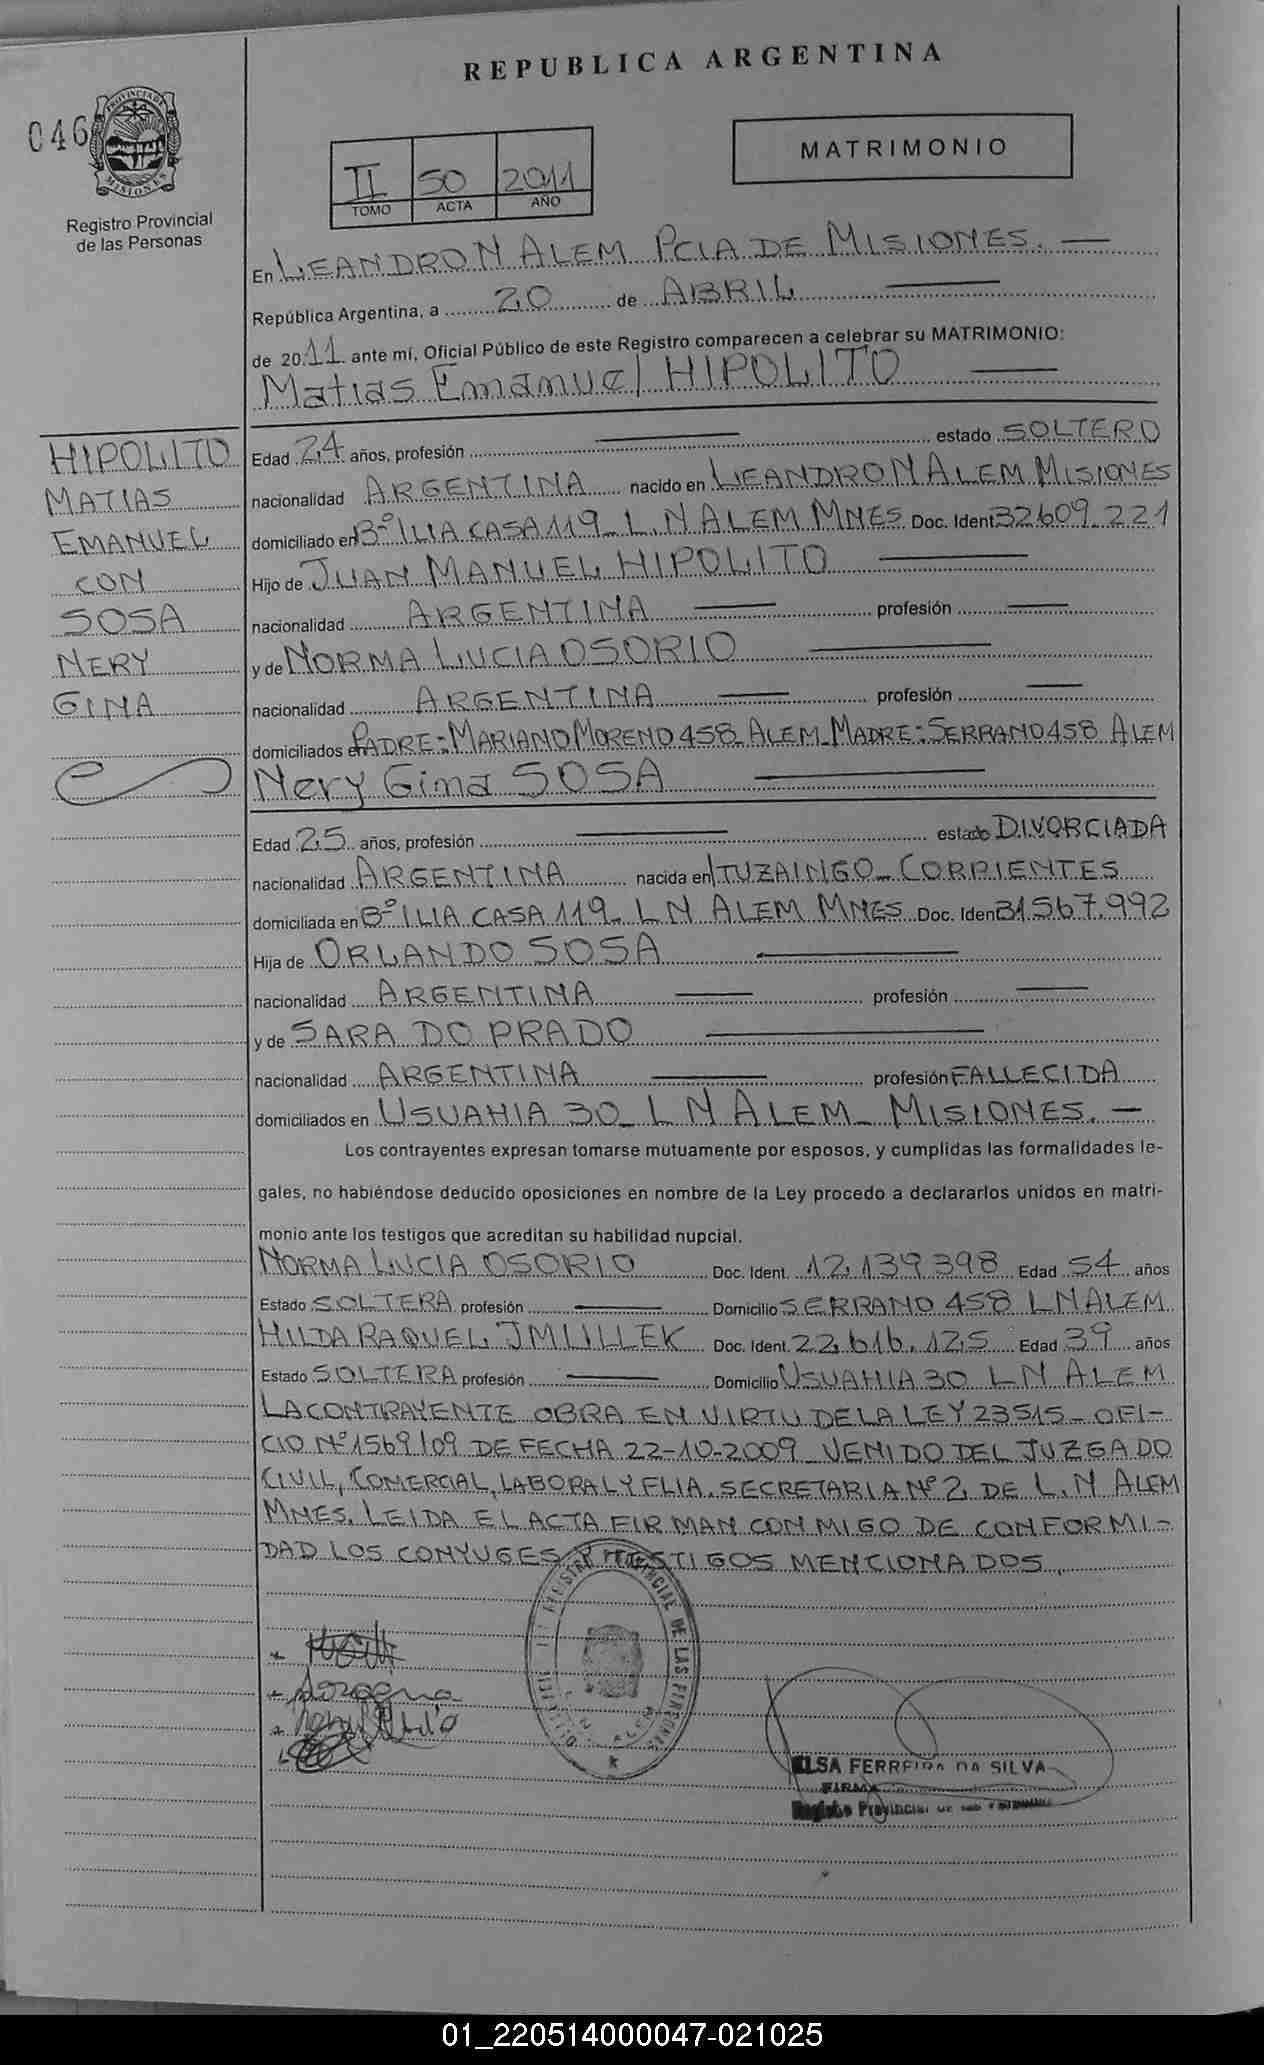 REPUBLICA ARGENTINA
046
PROVINCIA DE MISIONES
Registro Provincial
de las Personas
II 50 2011
TOMO ACTA AÑO
MATRIMONIO
En LEANDRO N ALEM PCIA DE MISIONES.
República Argentina, a 20 de ABRIL
de 2011 ante mí, Oficial Público de este Registro comparecen a celebrar su MATRIMONIO:
Matias Emanuel HIPOLITO
HIPOLITO
MATIAS
EMANUEL
CON
SOSA
NERY
GINA
Edad 24 años, profesión estado SOLTERO
nacionalidad ARGENTINA nacido en LEANDRO N ALEM MISIONES
domiciliado en Bº ILIA CASA 119_ L.N ALEM MNES Doc. Ident. 32609.221
Hijo de JUAN MANUEL HIPOLITO
nacionalidad ARGENTINA profesión
y de NORMA LUCIA OSORIO
nacionalidad ARGENTINA profesión
domiciliados en PADRE: MARIANO MORENO 458_ALEM_MADRE: SERRANO 458 ALEM
Nery Gina SOSA
Edad 25 años, profesión estado DIVORCIADA
nacionalidad ARGENTINA nacida en ITUZAINGO_CORRIENTES
domiciliada en Bº ILIA CASA 119_ L N ALEM MNES Doc. Iden 31.567.992
Hija de ORLANDO SOSA
nacionalidad ARGENTINA profesión
y de SARA DO PRADO
nacionalidad ARGENTINA profesión FALLECIDA
domiciliados en USUAHIA 30_ L N ALEM_ MISIONES.
Los contrayentes expresan tomarse mutuamente por esposos, y cumplidas las formalidades le-
gales, no habiéndose deducido oposiciones en nombre de la Ley procedo a declararlos unidos en matri-
monio ante los testigos que acreditan su habilidad nupcial.
NORMA LUCIA OSORIO Doc. Ident. 12.139.398 Edad 54 años
Estado SOLTERA profesión Domicilio SERRANO 458 L N ALEM
HILDA RAQUEL Doc. Ident. 22.616.125 Edad 39 años
Estado SOLTERA profesión Domicilio USUAHIA 30 L N ALEM
LA CONTRAYENTE OBRA EN VIRTU DE LA LEY 23515_ OFI-
CIO Nº 1569/09 DE FECHA 22-10-2009_ VENIDO DEL JUZGADO
CIVIL, COMERCIAL, LABORAL Y FLIA. SECRETARIA Nº 2, DE L.N ALEM
MNES. LEIDA EL ACTA FIRMAN CONMIGO DE CONFORMI-
DAD LOS CONYUGES Y TESTIGOS MENCIONADOS.
REGISTRO PROVINCIAL DE LAS PERSONAS
L. N. ALEM
ELSA FERREIRA DA SILVA
FIRMA
Registro Provincial de las Personas
01_220514000047-021025